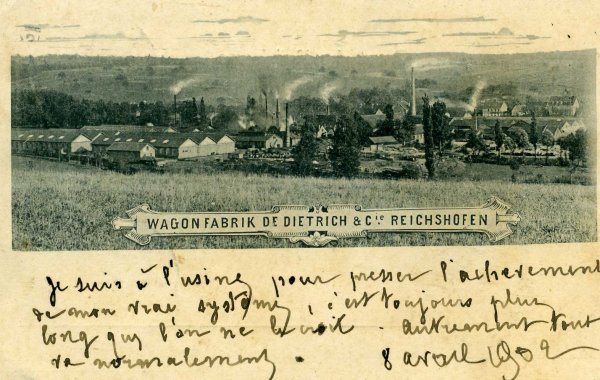 WAGON FABRIK DE DIETRICH & Cie REICHSHOFEN
Je suis à l'usine pour presser l'achèvement
de mon vrai système, c'est toujours plus
long que l'on ne le croit. Autrement tout
va normalement.
8 avril 1902